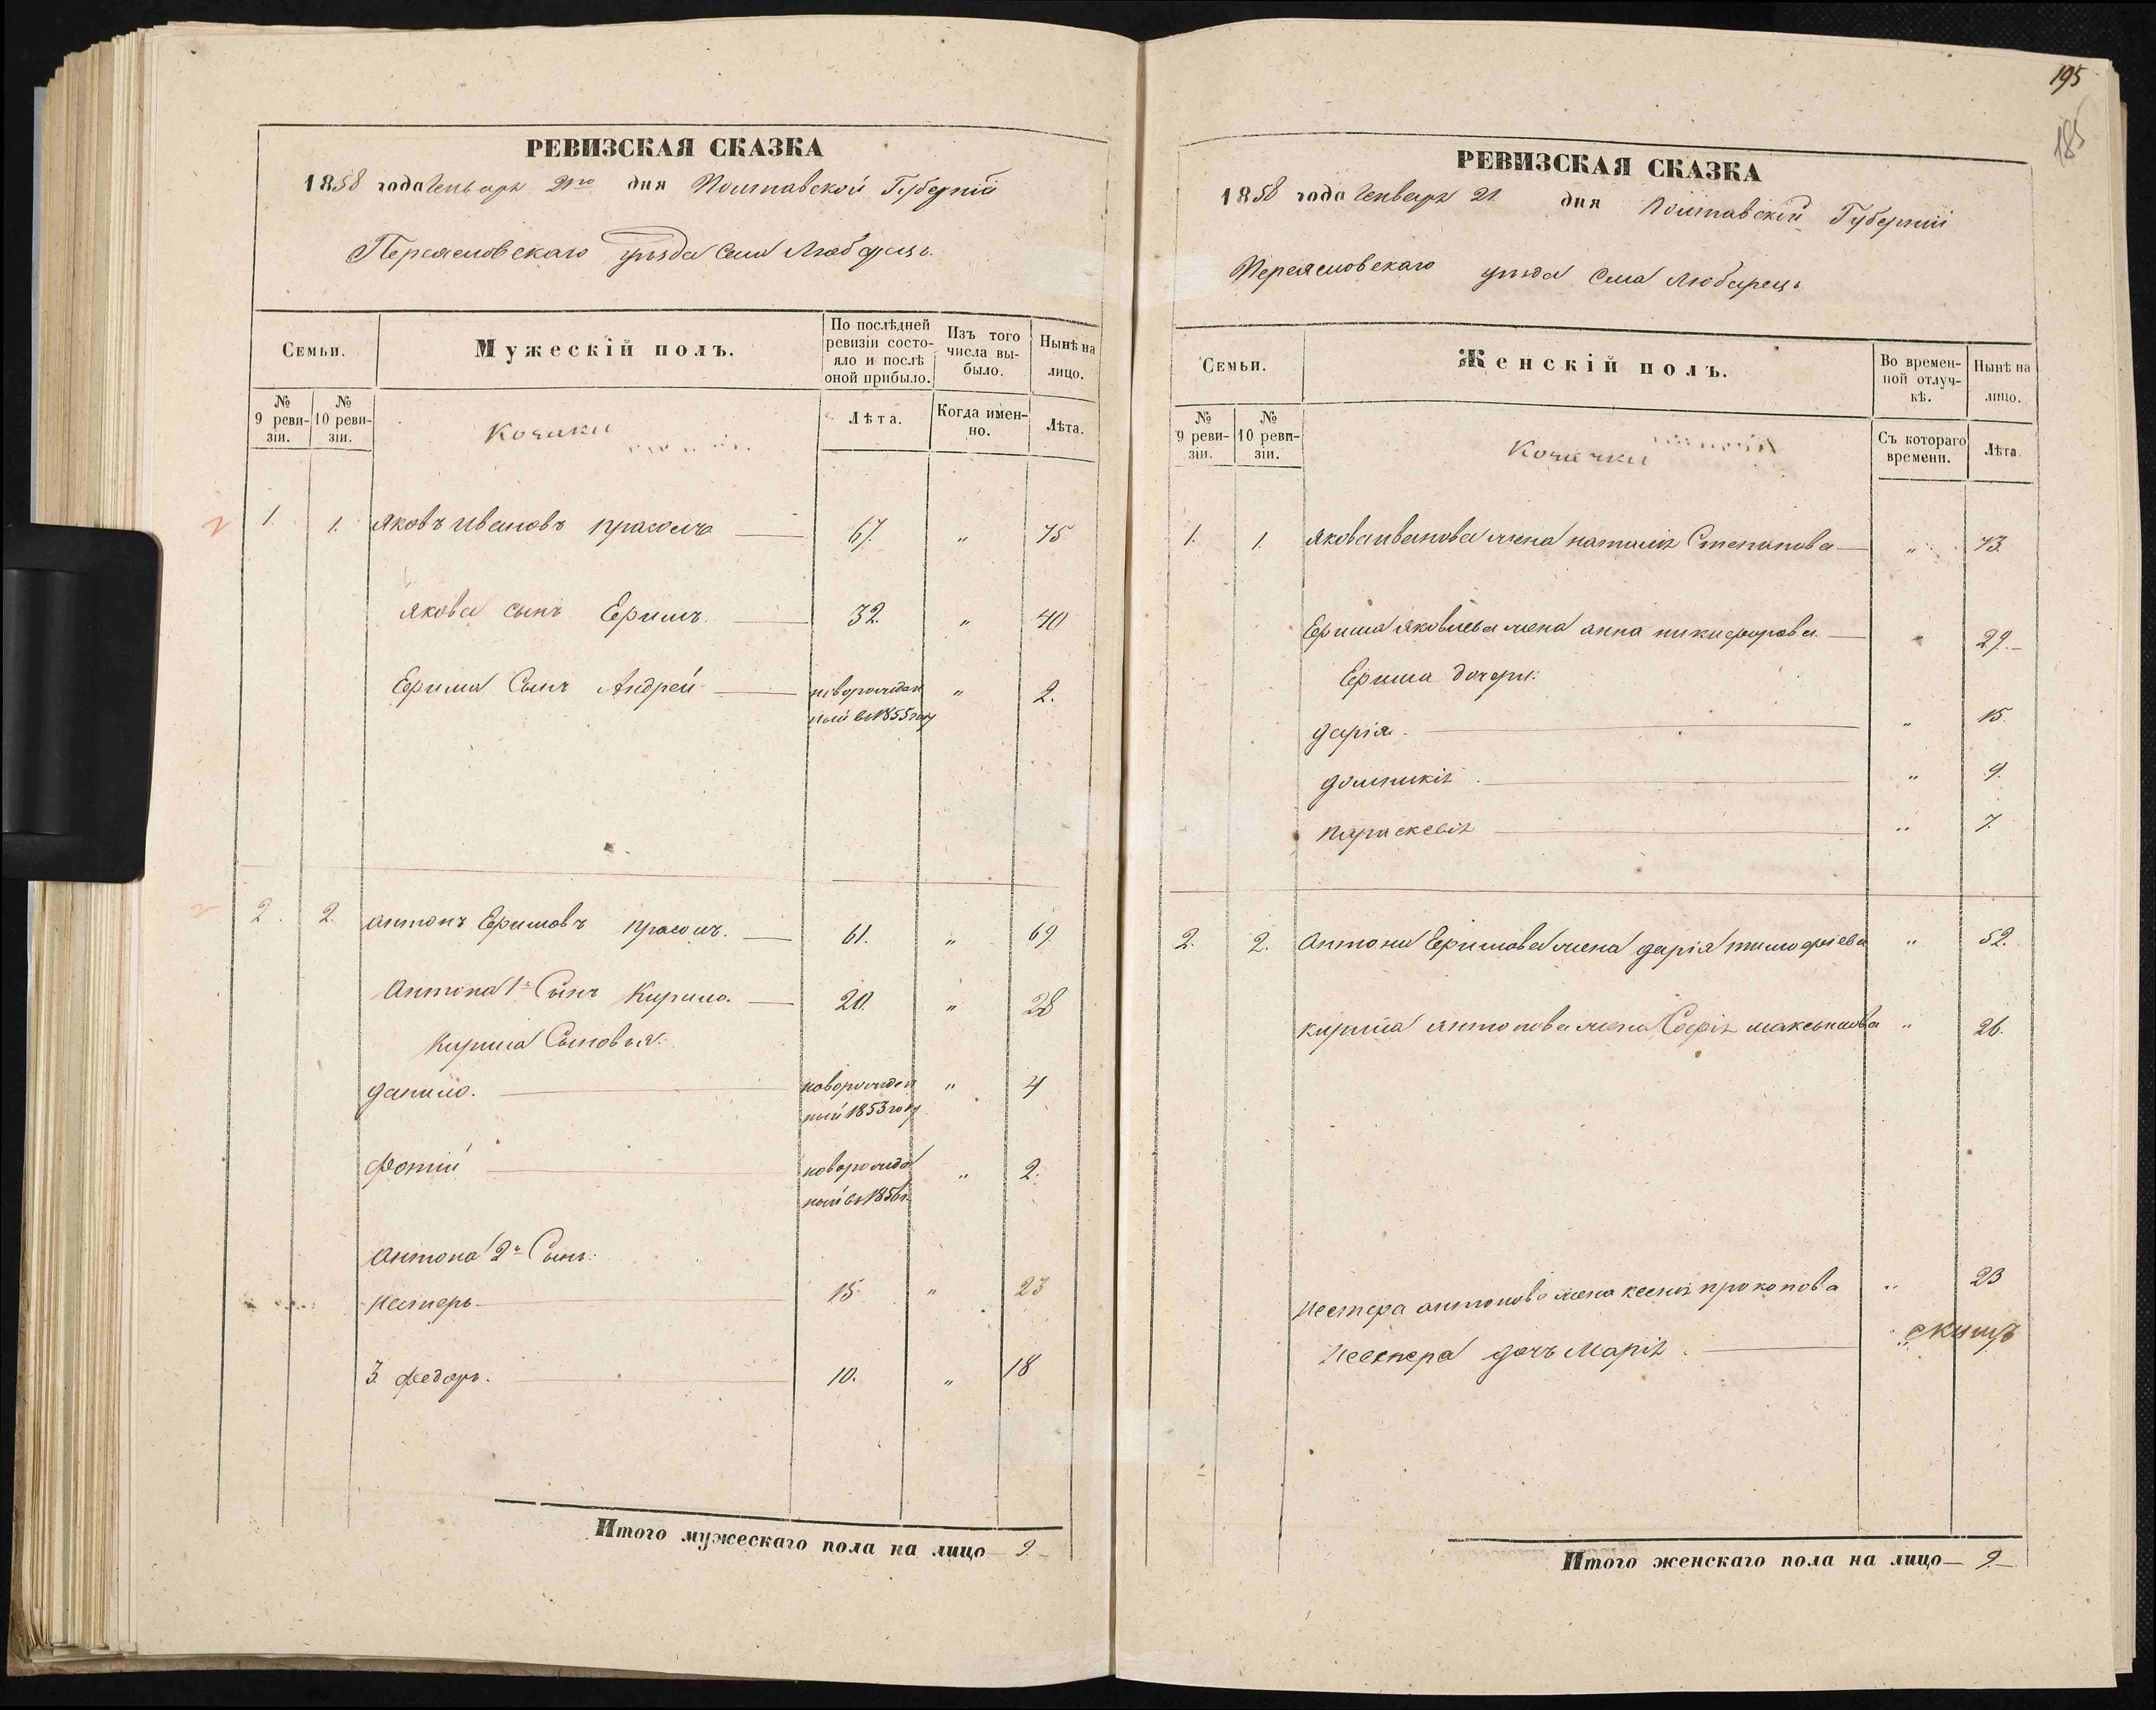 РЕВИЗСКАЯ СКАЗКА
1858 года Генваря 21го дня Полтавской Губерніи
Переясловскаго уѣзда Села Любарець
Семьи.
Мужескій полъ.
По послѣдней ревизіи состояло и послѣ оной прибыло.
Изъ того числа выбыло.
Нынѣ на лицо.
№ 9 ревизіи.
№ 10 ревизіи.
Козаки
Лѣта.
Когда именно.
Лѣта.
1. 1. Яковъ Ивановъ Прасолъ 67. " 75
Якова сынъ Ефимъ 32. " 40
Ефима Сынъ Андрей новорожден " 2.
ный въ 1855 году
2. 2. Антонъ Ефимовъ Прасолъ. 61. " 69
Антона 1й Сынъ Кирило. 20. " 28
Кирила Сыновья:
Данило. новорожден " 4
ный 1853 году
Фотій новорожде " 2.
ный въ 1856 г.
Антона 2й Сынъ:
Нестеръ 15 " 23
3. Федоръ. 10. " 18
Итого мужескаго пола на лицо 9.
195
185
РЕВИЗСКАЯ СКАЗКА
1858 года Генваря 21. дня Полтавскій Губерніи
Переясловскаго уѣзда Села Любарець
Семьи.
Женскій полъ.
Во временной отлучкѣ.
Нынѣ на лицо.
№ 9 ревизіи.
№ 10 ревизіи.
Козачки
Съ котораго времени.
Лѣта.
1. 1. Якова Иванова жена Наталія Степанова " 73.
Ефима Яковлева жена Анна Никифорова " 29.
Ефима дочери:
Дарія " 15.
Домникія " 9.
Параскевія " 7.
2. 2. Антона Ефимова жена Дарія Тимофіева " 52.
Кирила Антонова жена Софія Максимова " 26.
Нестера Антонова жена Ксенія Прокопова " 23
Нестера дочь Марія
Итого женскаго пола на лицо 9.